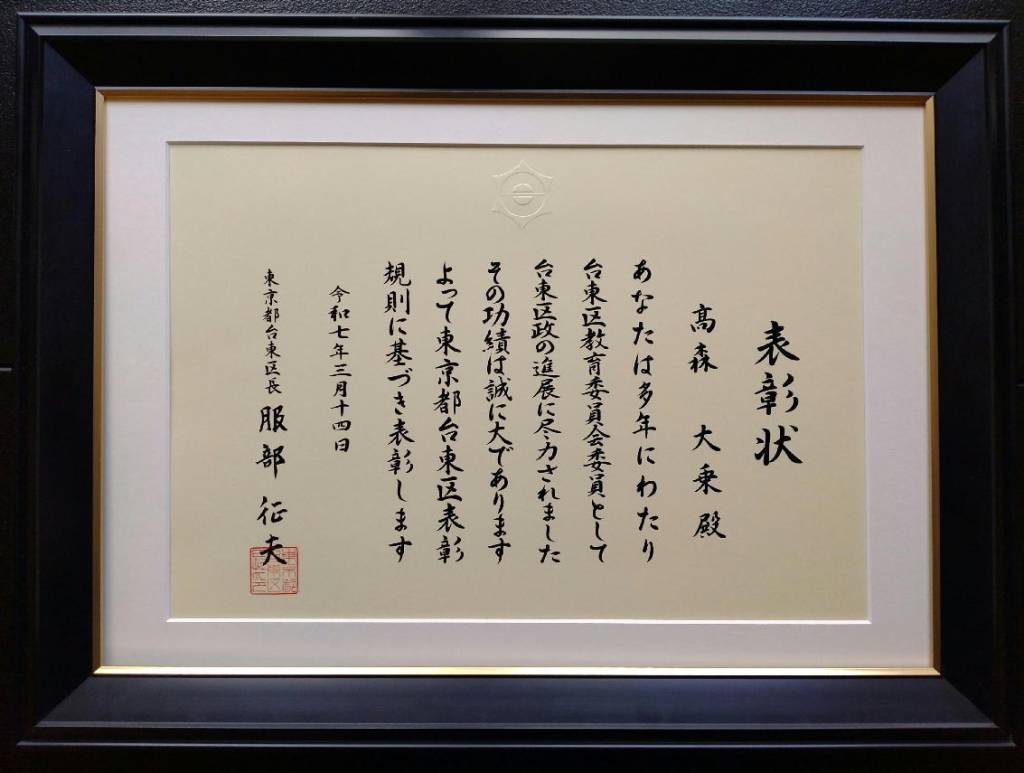 表彰状
髙森 大乗殿
あなたは多年にわたり
台東区教育委員会委員として
台東区政の進展に尽力されました
その功績は誠に大であります
よって東京都台東区表彰
規則に基づき表彰します
令和七年三月十四日
東京都台東区長 服部征夫